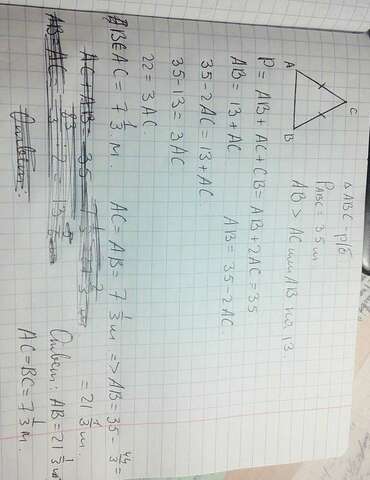 A
B
C
△ ABC - р/б
P ABC = 35 м
AB > AC или AB на 13.
P = AB + AC + CB = AB + 2AC = 35
AB = 13 + AC      AB = 35 - 2AC.
35 - 2AC = 13 + AC
35 - 13 = 3AC
22 = 3AC.
AC = 7 1/3 м.   AC = AB = 7 1/3 м => AB = 35 - 44/3 =
= 21 1/3 м.
Ответ: AB = 21 1/3 м
AC = BC = 7 1/3 м.
Ответ: